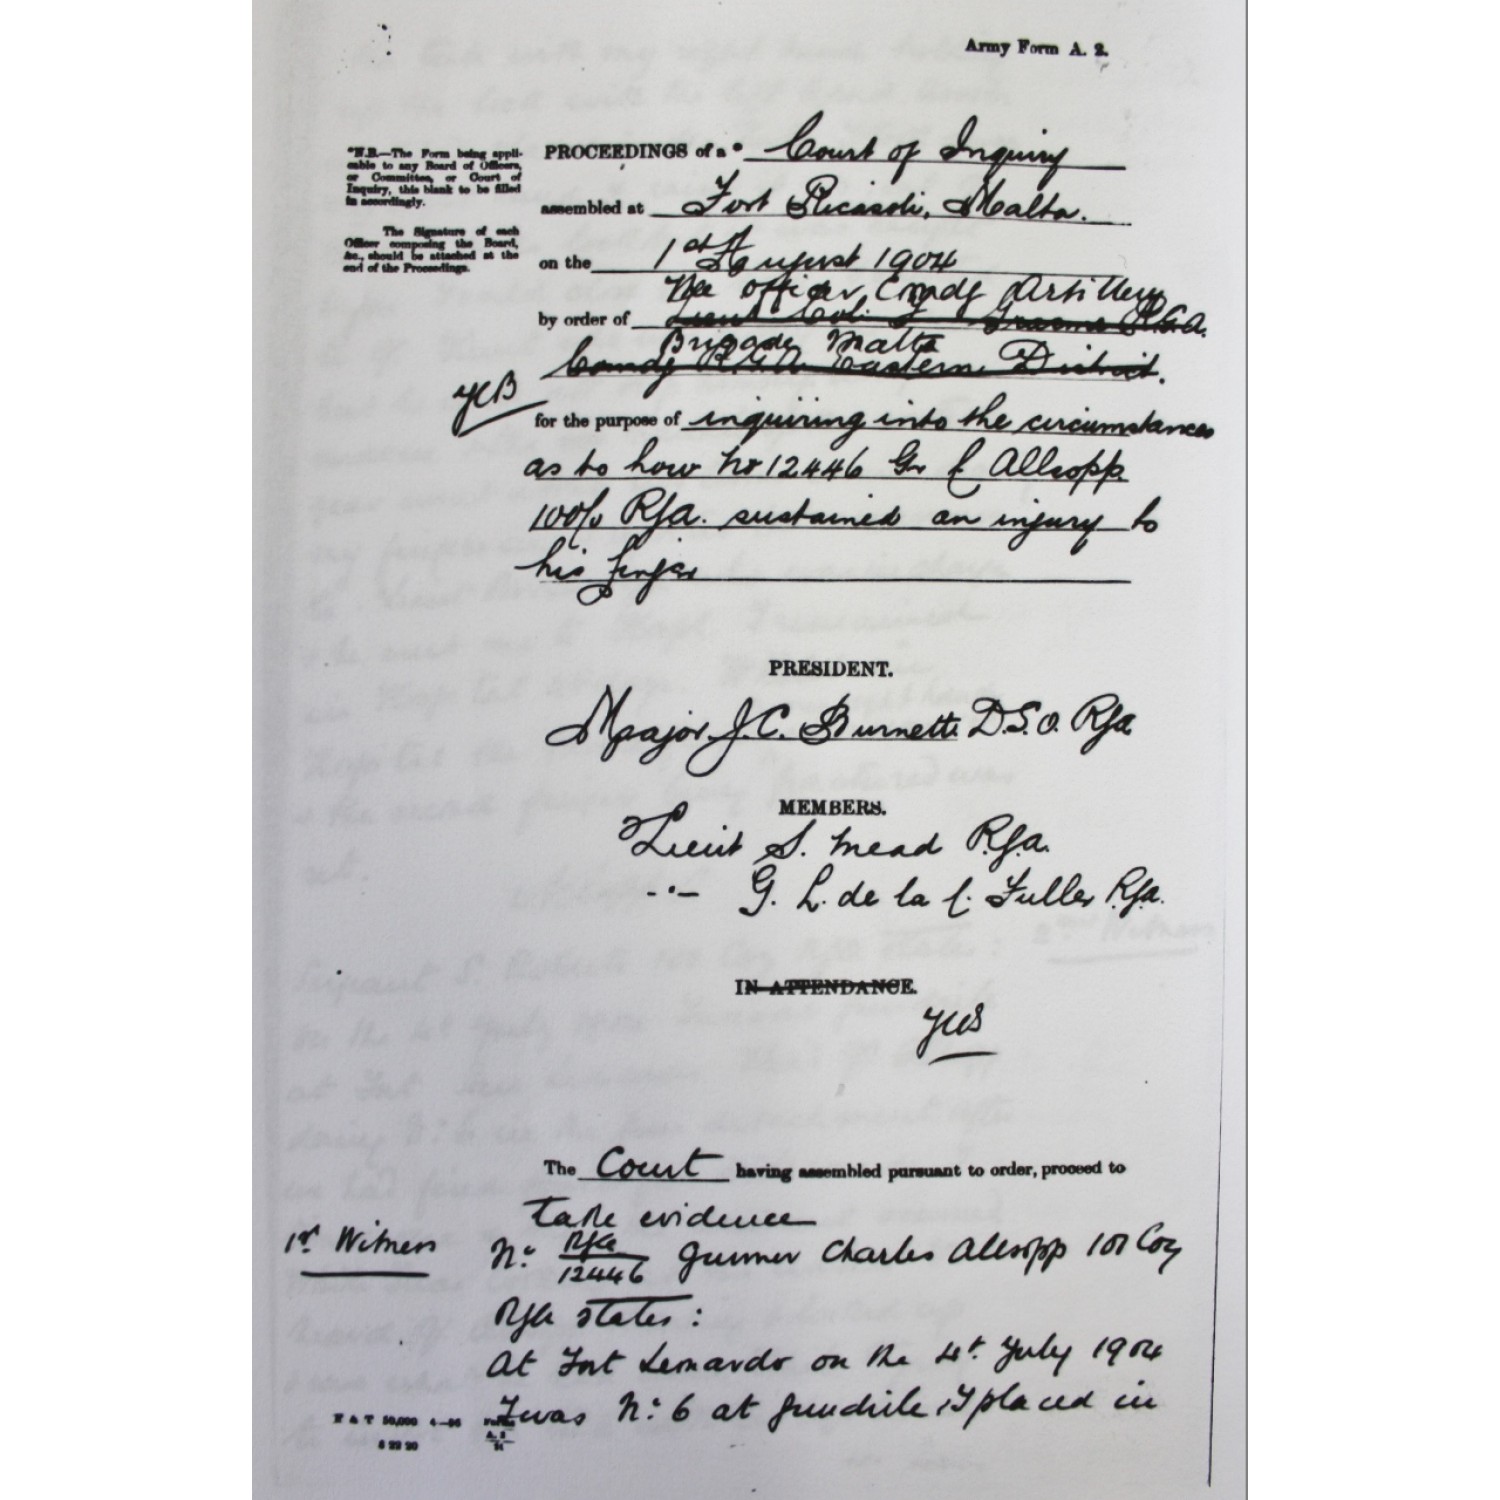 Army Form A. 2.
*N.B.—The Form being appli-
cable to any Board of Officers,
or Committee, or Court of
Inquiry, this blank to be filled
in accordingly.
The Signature of each
Officer composing the Board,
&c., should be attached at the
end of the Proceedings.
PROCEEDINGS of a * Court of Inquiry
assembled at Fort Ricasoli, Malta.
on the 1st August 1904
The officer Comdg Artillery
by order of Lieut Col. Graeme R.G.A.
Brigade Malta
Comdg R.G.A. Eastern District.
JCB
for the purpose of inquiring into the circumstances
as to how No 12446 Gr C Allsopp
RGA. sustained an injury to
his finger
PRESIDENT.
Major J.C. Burnett D.S.O. RGA
MEMBERS.
Lieut S. Mead R.G.A.
-"- G. L. de la C. Fuller R.G.A.
IN ATTENDANCE.
JCB
The Court having assembled pursuant to order, proceed to
take evidence
1st Witness
No. RGA
12446 Gunner Charles Allsopp 101 Coy
RGA states:
At Fort Leonardo on the 4th July 1904
I was No. 6 at gundrill, I placed in
F & T 50,000
S 22 20
Forms
A. 2